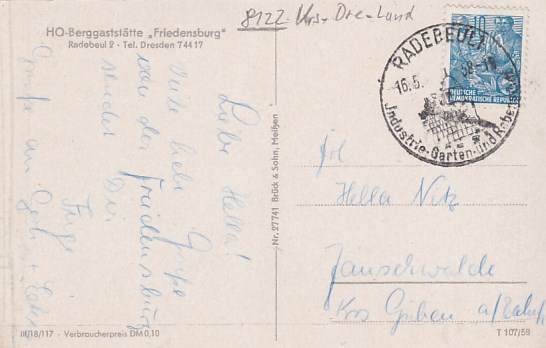 HO-Berggaststätte „Friedensburg"
Radebeul 2 - Tel. Dresden 74417
8122 Krs. Dre-Land
RADEBEUL 1
16.5.
Industrie-Garten-und
10
DEUTSCHE
DEMOKRATISCHE REPUBLIK
Liebe Hella!
Viele liebe Grüße
von der Friedensburg
sendet Dir
Inge
Gruß an
Nr. 27741 Brück & Sohn, Meißen
Frl
Hella Nitz
Jänschwalde
Krs Guben
III/18/117 - Verbraucherpreis DM 0,10
T 107/58